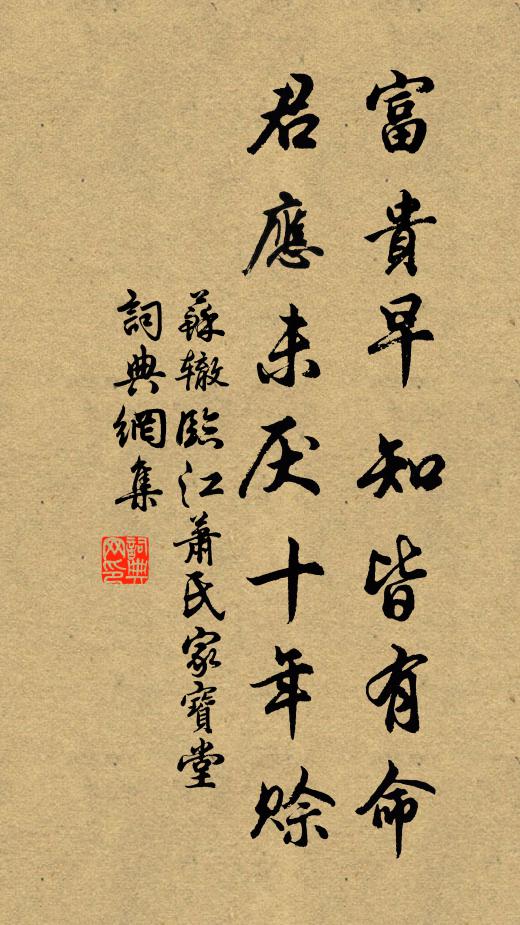 富貴早知皆有命
君應未厌十年賒
蘇辙臨江萧氏家寶堂
詞典網集
詞典网印